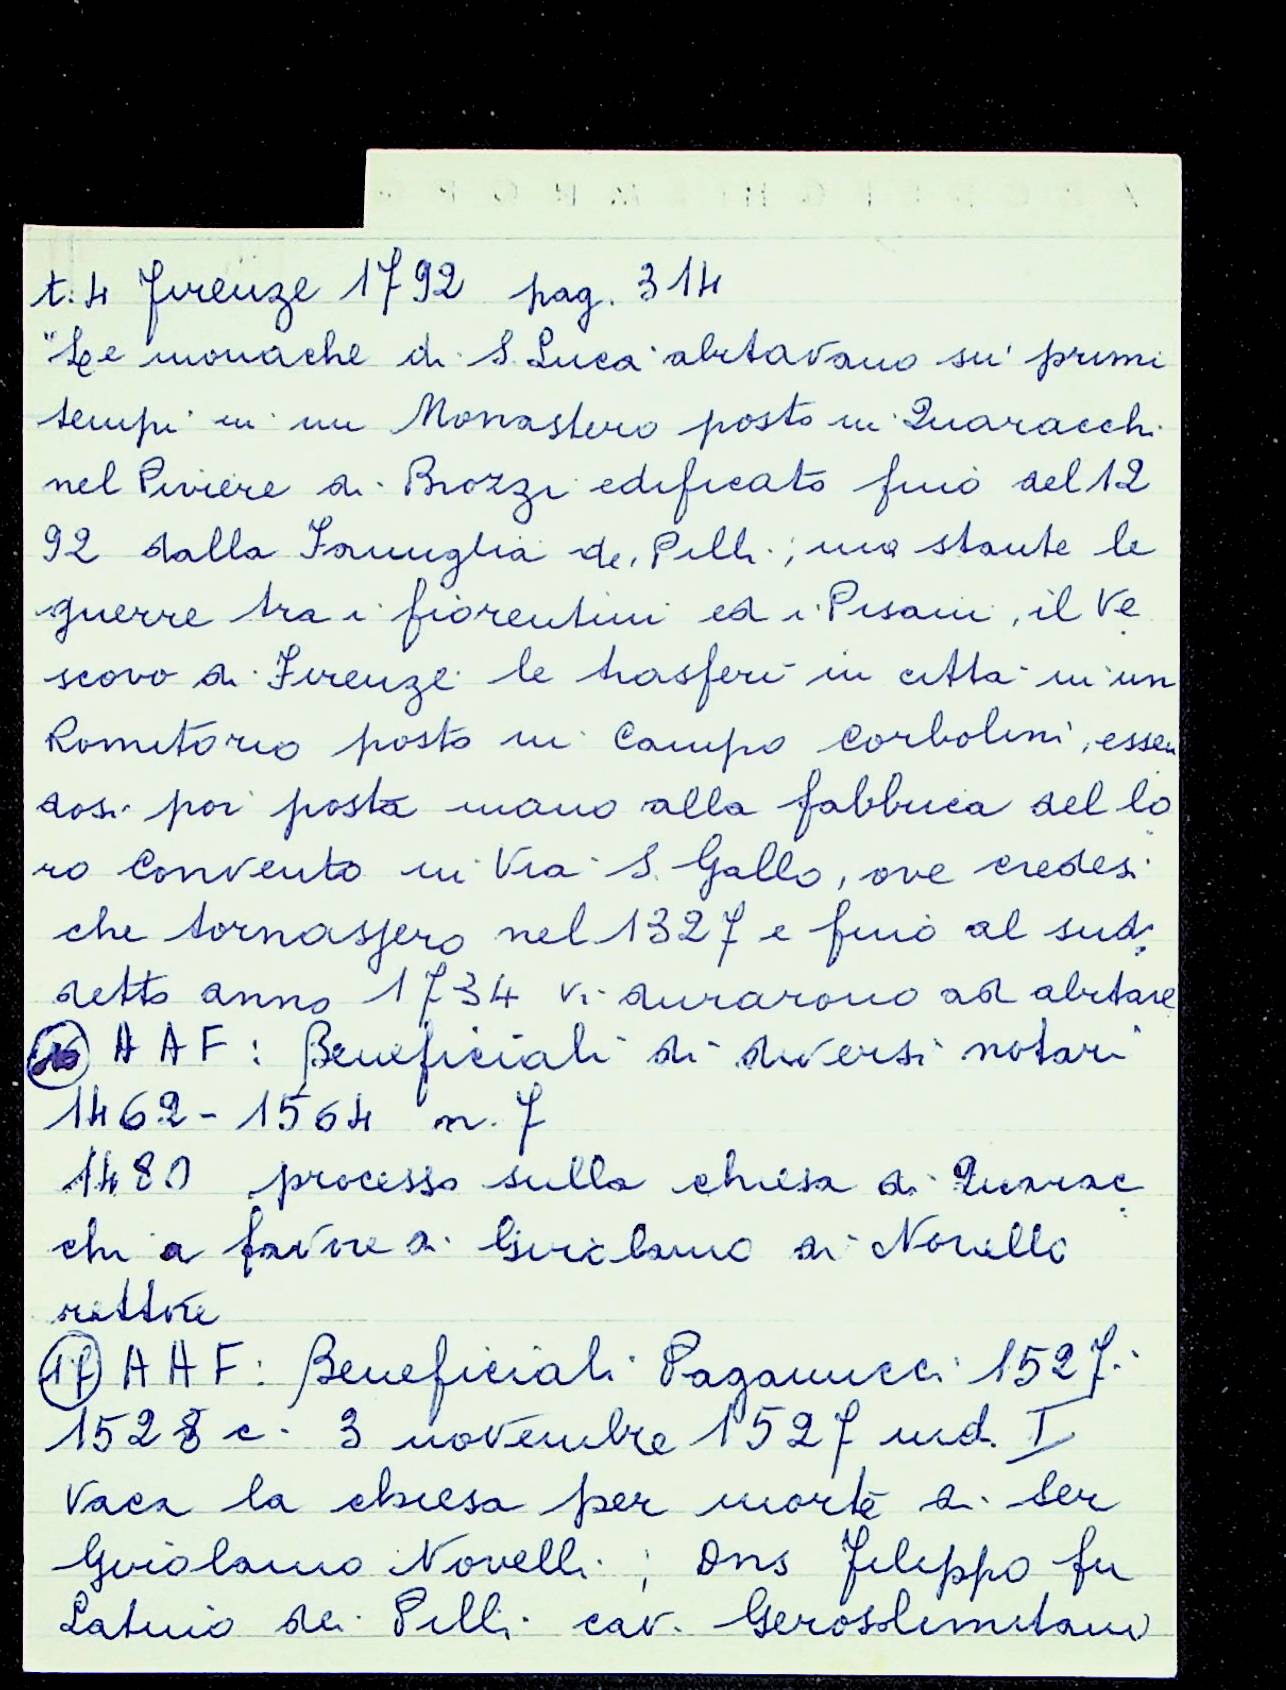 t. 4 Firenze 1792 pag. 314
"Le monache di S. Luca abitavano su' primi
tempi in un Monastero posto in Quaracchi
nel Piviere di Brozzi edificato fino del 12
92 dalla Famiglia de' Pilli; ma stante le
guerre tra i fiorentini ed i Pisani, il Ve
scovo di Firenze le trasferì in città in un
Romitorio posto in Campo Corbolini, essen
dosi poi posta mano alla fabbrica del lo
ro Convento in Via S. Gallo, ove credesi
che tornassero nel 1327 e fino al sud
detto anno 1734 vi durarono ad abitare
16 AAF: Beneficiali di diversi notari
1462-1564 n. 7
1480 processo sulla chiesa di Quarac
chi a favore di Girolamo di Novello
rettore
17 AAF: Beneficiali Paganucci 1527-
1528 c. 3 novembre 1527 ind. I
vaca la chiesa per morte di Ser
Girolamo Novelli; Dns Filippo fu
Latino dei Pilli cav. Gerosolimitano